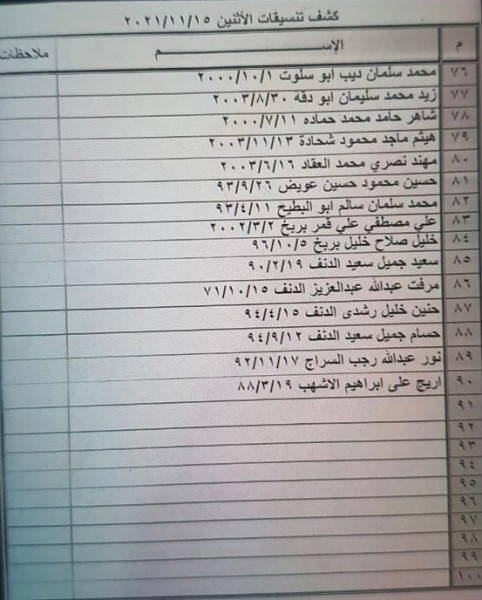 كشف تنسيقات الأثنين ٢٠٢١/١١/١٥
م الإســـــــم ملاحظات
٧٦ محمد سلمان ديب ابو سلوت ٢٠٠٠/١٠/١
٧٧ زيد محمد سليمان ابو دقه ٢٠٠٣/٨/٣٠
٧٨ شاهر حامد محمد حماده ٢٠٠٠/٧/١١
٧٩ هيثم ماجد محمود شحادة ٢٠٠٣/١١/١٣
٨٠ مهند نصري محمد العقاد ٢٠٠٣/٦/١٦
٨١ حسين محمود حسين عويض ٩٣/٩/٢٦
٨٢ محمد سلمان سالم ابو البطيخ ٩٣/٤/١١
٨٣ علي مصطفي علي قمر بربخ ٢٠٠٢/٣/٢
٨٤ خليل صلاح خليل بربخ ٩٦/١٠/٥
٨٥ سعيد جميل سعيد الدنف ٩٠/٢/١٩
٨٦ مرفت عبدالله عبدالعزيز الدنف ٧١/١٠/١٥
٨٧ حنين خليل رشدى الدنف ٩٤/٤/١٥
٨٨ حسام جميل سعيد الدنف ٩٤/٩/١٢
٨٩ نور عبدالله رجب السراج ٩٢/١١/١٧
٩٠ اريج على ابراهيم الاشهب ٨٨/٣/١٩
٩١
٩٢
٩٣
٩٤
٩٥
٩٦
٩٧
٩٨
٩٩
١٠٠